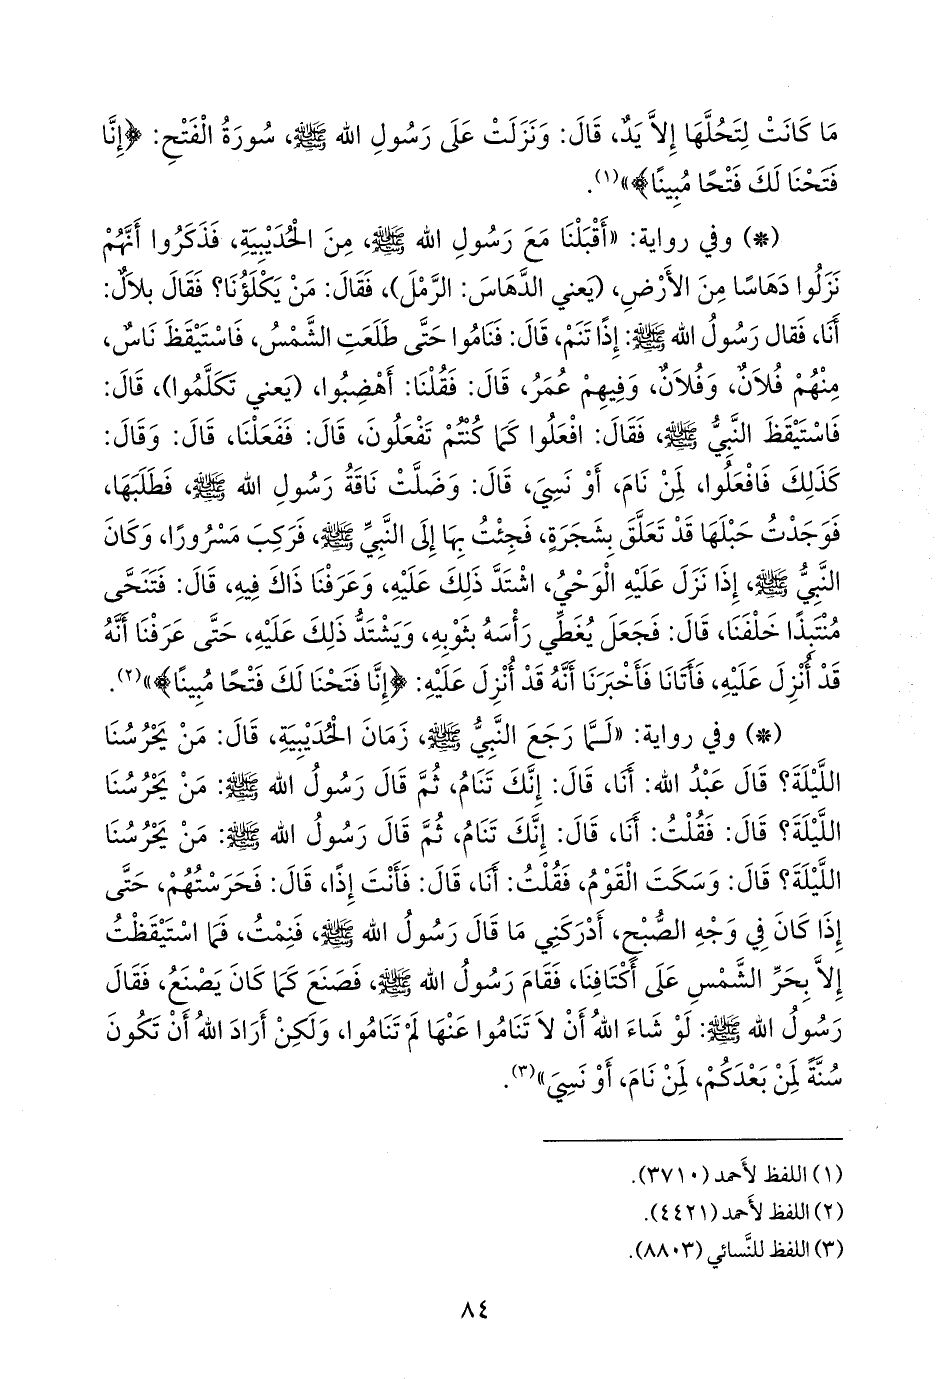 مَا كَانَتْ لِتَحُلَّهَا إِلاَّ يَدٌ، قَالَ: وَنَزَلَتْ عَلَى رَسُولِ الله ﷺ، سُورَةُ الْفَتْحِ: ﴿إِنَّا
فَتَحْنَا لَكَ فَتْحًا مُبِينًا﴾»(١).
(*) وفي رواية: «أَقْبَلْنَا مَعَ رَسُولِ الله ﷺ، مِنَ الْحُدَيْبِيَةِ، فَذَكَرُوا أَنَّهُمْ
نَزَلُوا دَهَاسًا مِنَ الأَرْضِ، (يعني الدَّهَاسَ: الرَّمْلَ)، فَقَالَ: مَنْ يَكْلَؤُنَا؟ فَقَالَ بلاَلٌ:
أَنَا، فَقال رَسُولُ الله ﷺ: إِذًا تَنَمْ، قَالَ: فَنَامُوا حَتَّى طَلَعَتِ الشَّمْسُ، فَاسْتَيْقَظَ نَاسٌ،
مِنْهُمْ فُلاَنٌ، وَفُلاَنٌ، وَفِيهِمْ عُمَرُ، قَالَ: فَقُلْنَا: أَهْضِبُوا، (يَعني تَكَلَّمُوا)، قَالَ:
فَاسْتَيْقَظَ النَّبِيُّ ﷺ، فَقَالَ: افْعَلُوا كَمَا كُنْتُمْ تَفْعَلُونَ، قَالَ: فَفَعَلْنَا، قَالَ: وَقَالَ:
كَذَلِكَ فَافْعَلُوا، لِمَنْ نَامَ، أَوْ نَسِيَ، قَالَ: وَضَلَّتْ نَاقَةُ رَسُولِ الله ﷺ، فَطَلَبَهَا،
فَوَجَدْتُ حَبْلَهَا قَدْ تَعَلَّقَ بِشَجَرَةٍ، فَجِئْتُ بِهَا إِلَى النَّبِيِّ ﷺ، فَرَكِبَ مَسْرُورًا، وَكَانَ
النَّبِيُّ ﷺ، إِذَا نَزَلَ عَلَيْهِ الْوَحْيُ، اشْتَدَّ ذَلِكَ عَلَيْهِ، وَعَرَفْنَا ذَاكَ فِيهِ، قَالَ: فَتَنَحَّى
مُنْتَبِذًا خَلْفَنَا، قَالَ: فَجَعَلَ يُغَطِّي رَأْسَهُ بِثَوْبِهِ، وَيَشْتَدُّ ذَلِكَ عَلَيْهِ، حَتَّى عَرَفْنَا أَنَّهُ
قَدْ أُنْزِلَ عَلَيْهِ، فَأَتَانَا فَأَخْبَرَنَا أَنَّهُ قَدْ أُنْزِلَ عَلَيْهِ: ﴿إِنَّا فَتَحْنَا لَكَ فَتْحًا مُبِينًا﴾»(٢).
(*) وفي رواية: «لَـمَّا رَجَعَ النَّبِيُّ ﷺ، زَمَانَ الْحُدَيْبِيَةِ، قَالَ: مَنْ يَحْرُسُنَا
اللَّيْلَةَ؟ قَالَ عَبْدُ الله: أَنَا، قَالَ: إِنَّكَ تَنَامُ، ثُمَّ قَالَ رَسُولُ الله ﷺ: مَنْ يَحْرُسُنَا
اللَّيْلَةَ؟ قَالَ: فَقُلْتُ: أَنَا، قَالَ: إِنَّكَ تَنَامُ، ثُمَّ قَالَ رَسُولُ الله ﷺ: مَنْ يَحْرُسُنَا
اللَّيْلَةَ؟ قَالَ: وَسَكَتَ الْقَوْمُ، فَقُلْتُ: أَنَا، قَالَ: فَأَنْتَ إِذًا، قَالَ: فَحَرَسْتُهُمْ، حَتَّى
إِذَا كَانَ فِي وَجْهِ الصُّبْحِ، أَدْرَكَنِي مَا قَالَ رَسُولُ الله ﷺ، فَنِمْتُ، فَمَا اسْتَيْقَظْتُ
إِلاَّ بِحَرِّ الشَّمْسِ عَلَى أَكْتَافِنَا، فَقَامَ رَسُولُ الله ﷺ، فَصَنَعَ كَمَا كَانَ يَصْنَعُ، فَقَالَ
رَسُولُ الله ﷺ: لَوْ شَاءَ اللهُ أَنْ لاَ تَنَامُوا عَنْهَا لَمْ تَنَامُوا، وَلَكِنْ أَرَادَ اللهُ أَنْ تَكُونَ
سُنَّةً لِمَنْ بَعْدَكُمْ، لِمَنْ نَامَ، أَوْ نَسِيَ»(٣).
(١) اللفظ لأَحمد (٣٧١٠).
(٢) اللفظ لأَحمد (٤٤٢١).
(٣) اللفظ للنَّسائي (٨٨٠٣).
٨٤